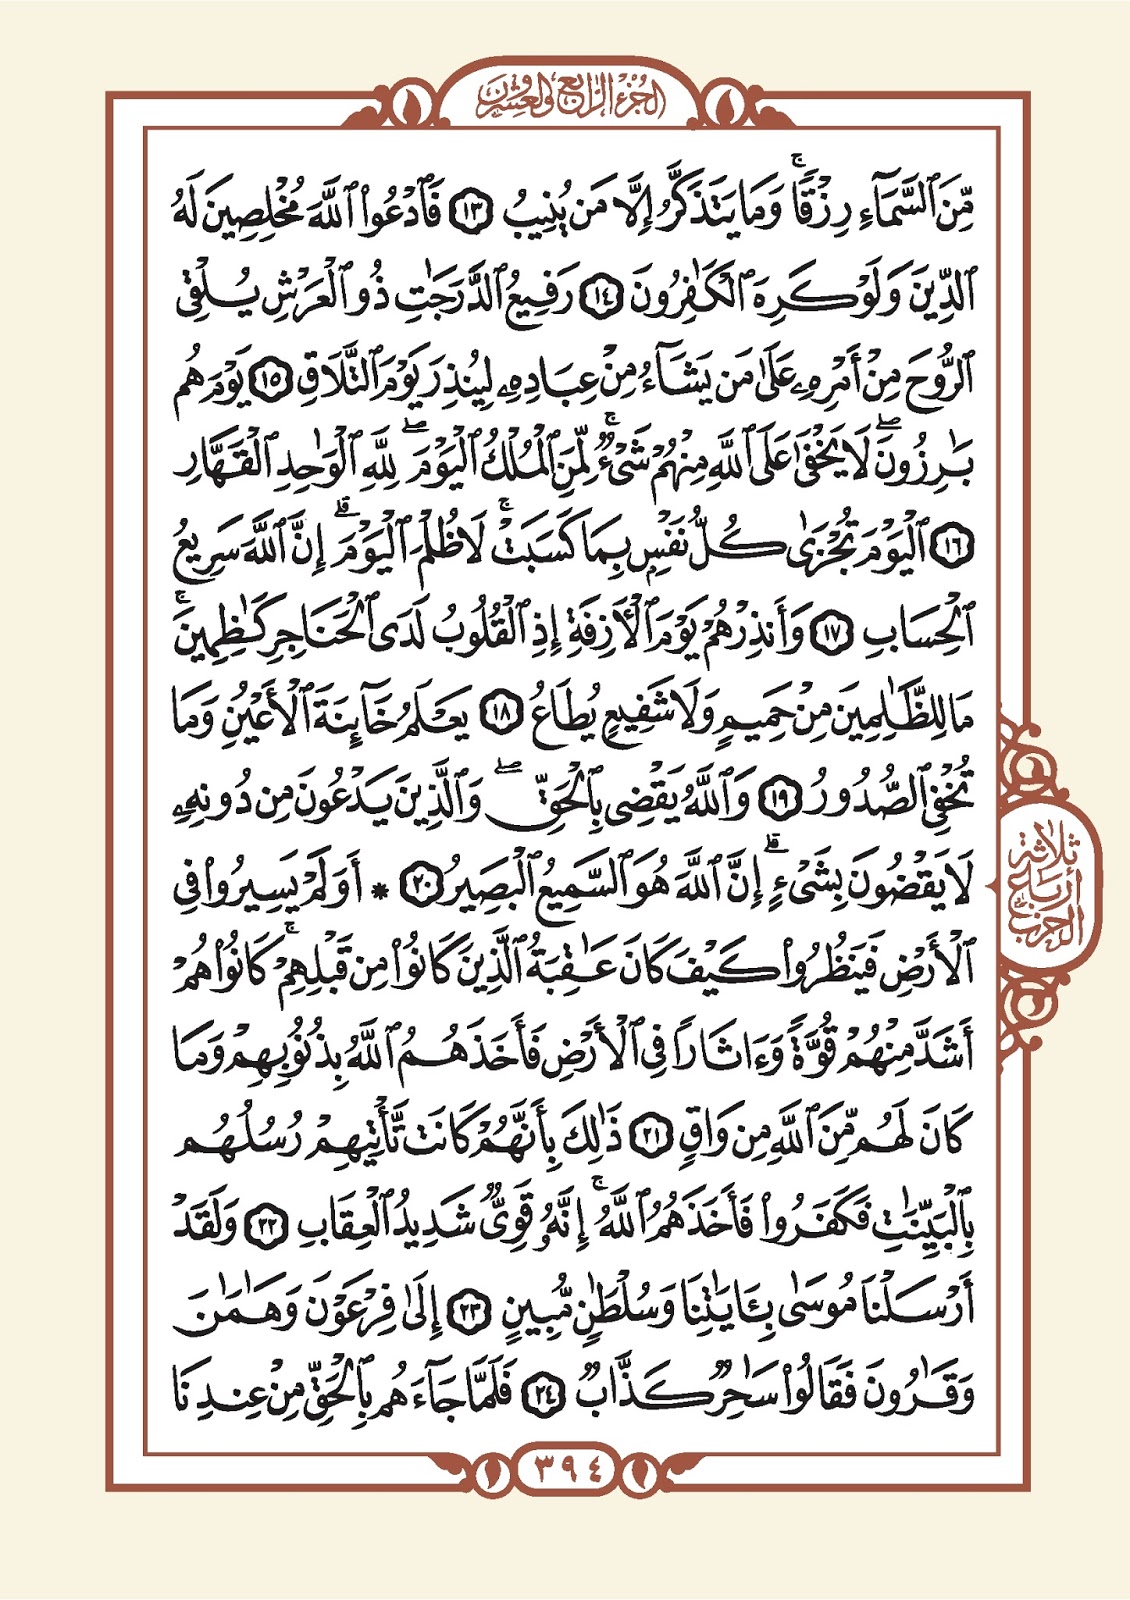 الجزء الرابع والعشرون
مِّنَ ٱلسَّمَآءِ رِزْقًاۚ وَمَا يَتَذَكَّرُ إِلَّا مَن يُنِيبُ ١٣ فَٱدْعُوا۟ ٱللَّهَ مُخْلِصِينَ لَهُ
ٱلدِّينَ وَلَوْ كَرِهَ ٱلْكَٰفِرُونَ ١٤ رَفِيعُ ٱلدَّرَجَٰتِ ذُو ٱلْعَرْشِ يُلْقِى
ٱلرُّوحَ مِنْ أَمْرِهِۦ عَلَىٰ مَن يَشَآءُ مِنْ عِبَادِهِۦ لِيُنذِرَ يَوْمَ ٱلتَّلَاقِ ١٥ يَوْمَ هُم
بَٰرِزُونَۖ لَا يَخْفَىٰ عَلَى ٱللَّهِ مِنْهُمْ شَىْءٌۚ لِّمَنِ ٱلْمُلْكُ ٱلْيَوْمَۖ لِلَّهِ ٱلْوَٰحِدِ ٱلْقَهَّارِ
١٦ ٱلْيَوْمَ تُجْزَىٰ كُلُّ نَفْسٍۭ بِمَا كَسَبَتْۚ لَا ظُلْمَ ٱلْيَوْمَۚ إِنَّ ٱللَّهَ سَرِيعُ
ٱلْحِسَابِ ١٧ وَأَنذِرْهُمْ يَوْمَ ٱلْءَازِفَةِ إِذِ ٱلْقُلُوبُ لَدَى ٱلْحَنَاجِرِ كَٰظِمِينَۚ
مَا لِلظَّٰلِمِينَ مِنْ حَمِيمٍ وَلَا شَفِيعٍ يُطَاعُ ١٨ يَعْلَمُ خَآئِنَةَ ٱلْأَعْيُنِ وَمَا
تُخْفِى ٱلصُّدُورُ ١٩ وَٱللَّهُ يَقْضِى بِٱلْحَقِّۖ وَٱلَّذِينَ يَدْعُونَ مِن دُونِهِۦ
لَا يَقْضُونَ بِشَىْءٍۗ إِنَّ ٱللَّهَ هُوَ ٱلسَّمِيعُ ٱلْبَصِيرُ ٢٠ * أَوَلَمْ يَسِيرُوا۟ فِى
ٱلْأَرْضِ فَيَنظُرُوا۟ كَيْفَ كَانَ عَٰقِبَةُ ٱلَّذِينَ كَانُوا۟ مِن قَبْلِهِمْۚ كَانُوا۟ هُمْ
أَشَدَّ مِنْهُمْ قُوَّةً وَءَاثَارًا فِى ٱلْأَرْضِ فَأَخَذَهُمُ ٱللَّهُ بِذُنُوبِهِمْ وَمَا
كَانَ لَهُم مِّنَ ٱللَّهِ مِن وَاقٍ ٢١ ذَٰلِكَ بِأَنَّهُمْ كَانَت تَّأْتِيهِمْ رُسُلُهُم
بِٱلْبَيِّنَٰتِ فَكَفَرُوا۟ فَأَخَذَهُمُ ٱللَّهُۚ إِنَّهُۥ قَوِىٌّ شَدِيدُ ٱلْعِقَابِ ٢٢ وَلَقَدْ
أَرْسَلْنَا مُوسَىٰ بِـَٔايَٰتِنَا وَسُلْطَٰنٍ مُّبِينٍ ٢٣ إِلَىٰ فِرْعَوْنَ وَهَٰمَٰنَ
وَقَٰرُونَ فَقَالُوا۟ سَٰحِرٌ كَذَّابٌ ٢٤ فَلَمَّا جَآءَهُم بِٱلْحَقِّ مِنْ عِندِنَا
ثلاثة
أرباع
الحزب
٣٩٤